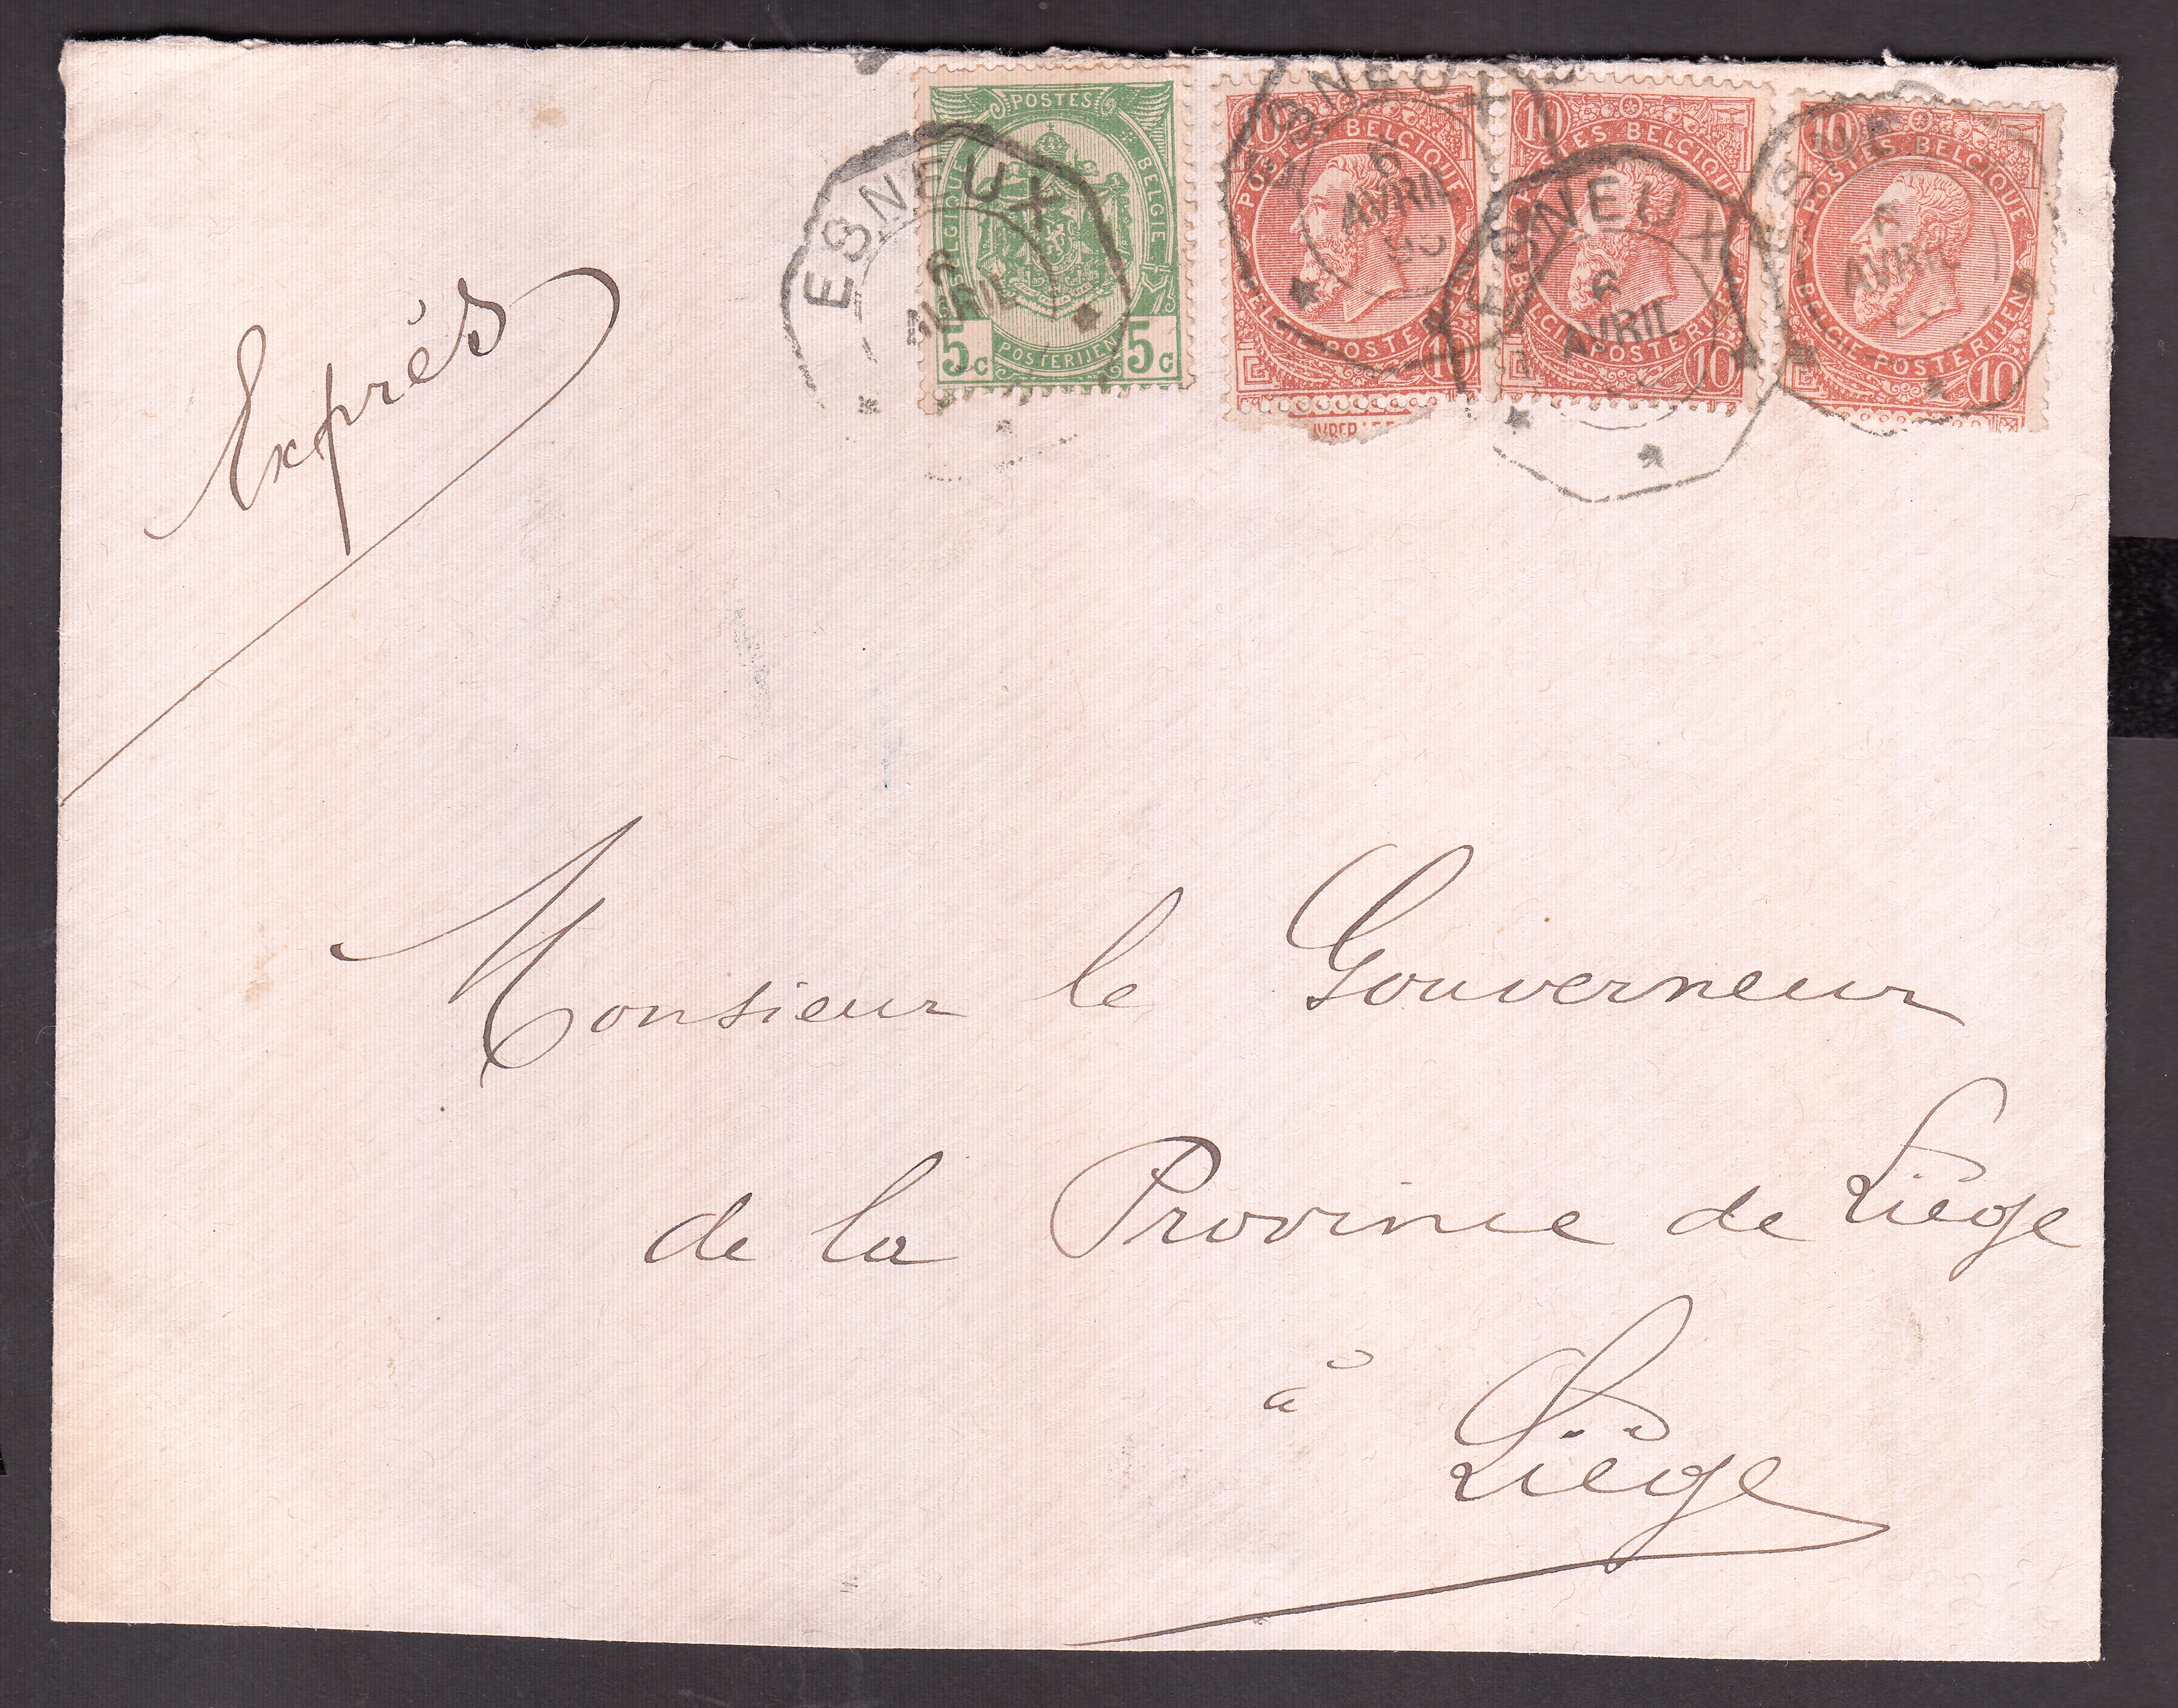 Exprés
POSTES
BELGIQUE BELGIE
5c POSTERIJEN 5c
ESNEUX
6
AVRIL
10
POSTES BELGIQUE
BELGIE POSTERIJEN
10
ESNEUX
6
AVRIL
10
POSTES BELGIQUE
BELGIE POSTERIJEN
10
ESNEUX
6
AVRIL
10
POSTES BELGIQUE
BELGIE POSTERIJEN
10
6
AVRIL
Monsieur le Gouverneur
de la Province de Liége
à
Liége